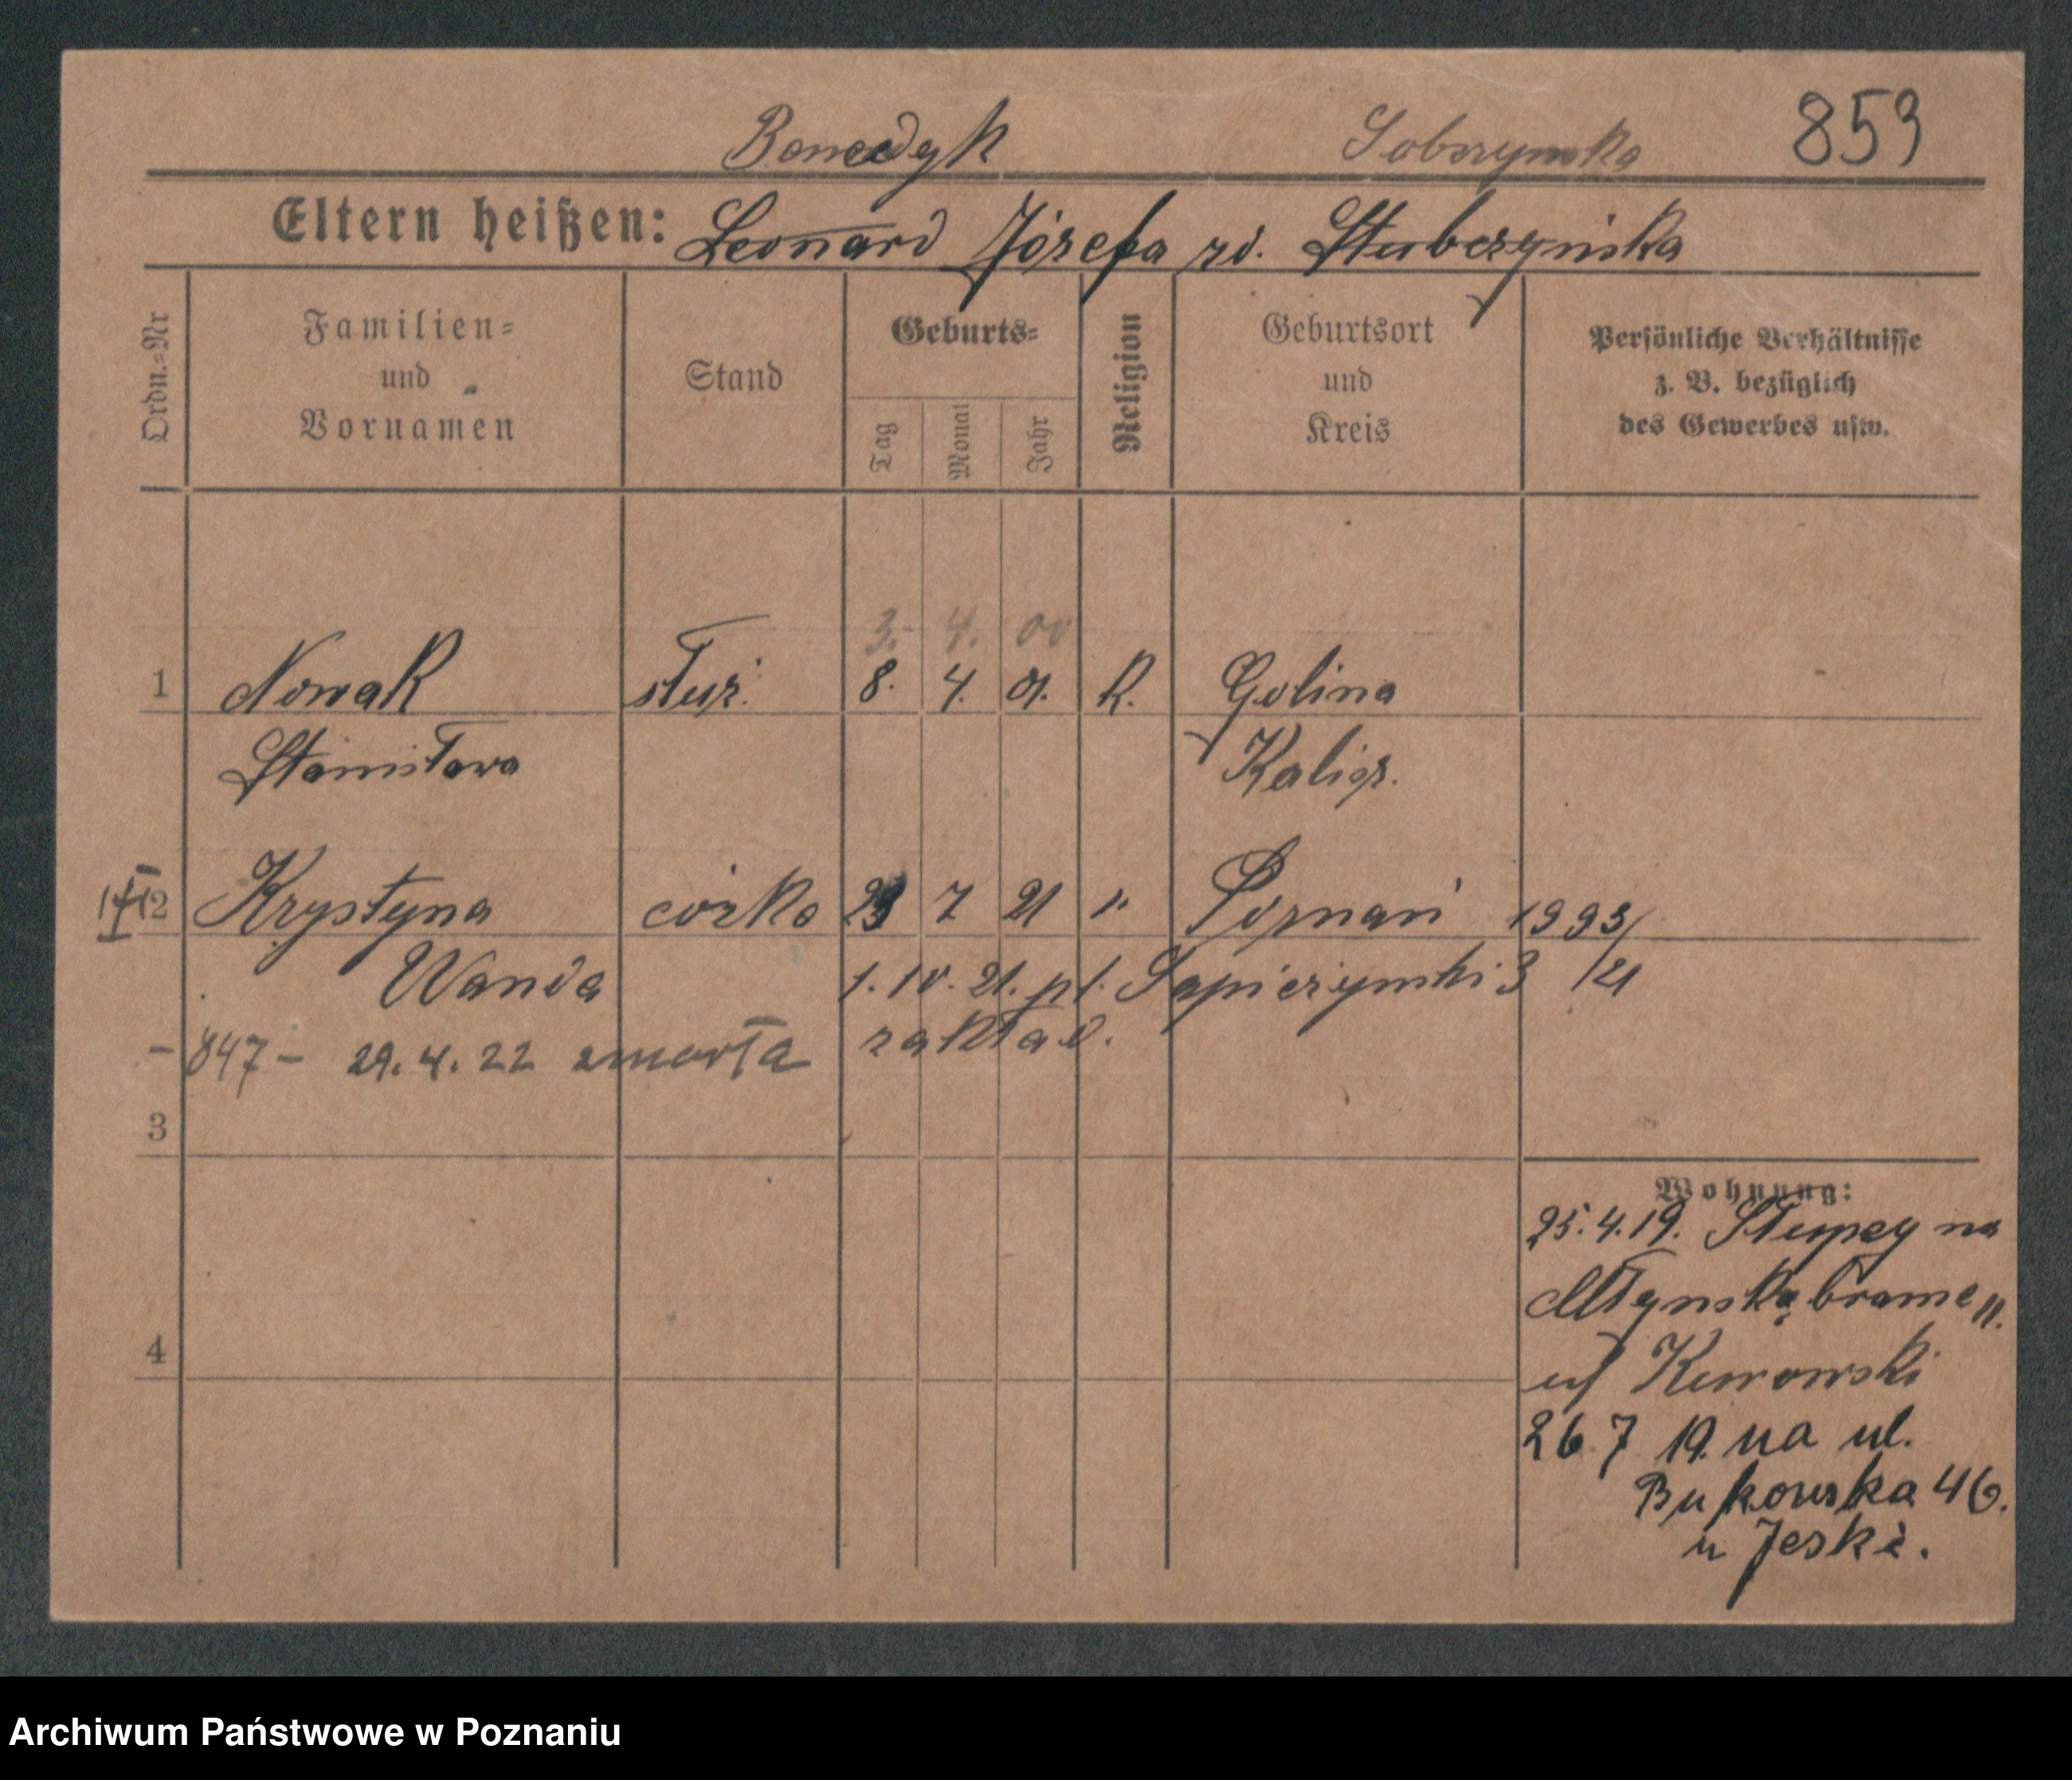 Benedyk Sobczynska 853
Eltern heißen: Leonard Józefa zd. Stubczyńska
Ordn.=Nr
Familien= und Vornamen
Stand
Geburts=
Tag Monat Jahr
Religion
Geburtsort und Kreis
Persönliche Verhältnisse
z. B. bezüglich
des Gewerbes usw.
3. 4. 00
1 Nowak służ. 8. 4. 01. K. Golina
Stanisława Kalisz.
2 Krystyna córka 7 21 " Poznań 1993/
Wanda 1. 10. 21. pl. Sapieżynski 3 /21
- 847 - 29. 4. 22 zmarła zakład.
3
Wohnung:
25. 4. 19. Słupcy na
Młynską brame 11.
4
Kurowski
26 7 19. na ul.
Bukowska 46.
u Jeski.
Archiwum Państwowe w Poznaniu